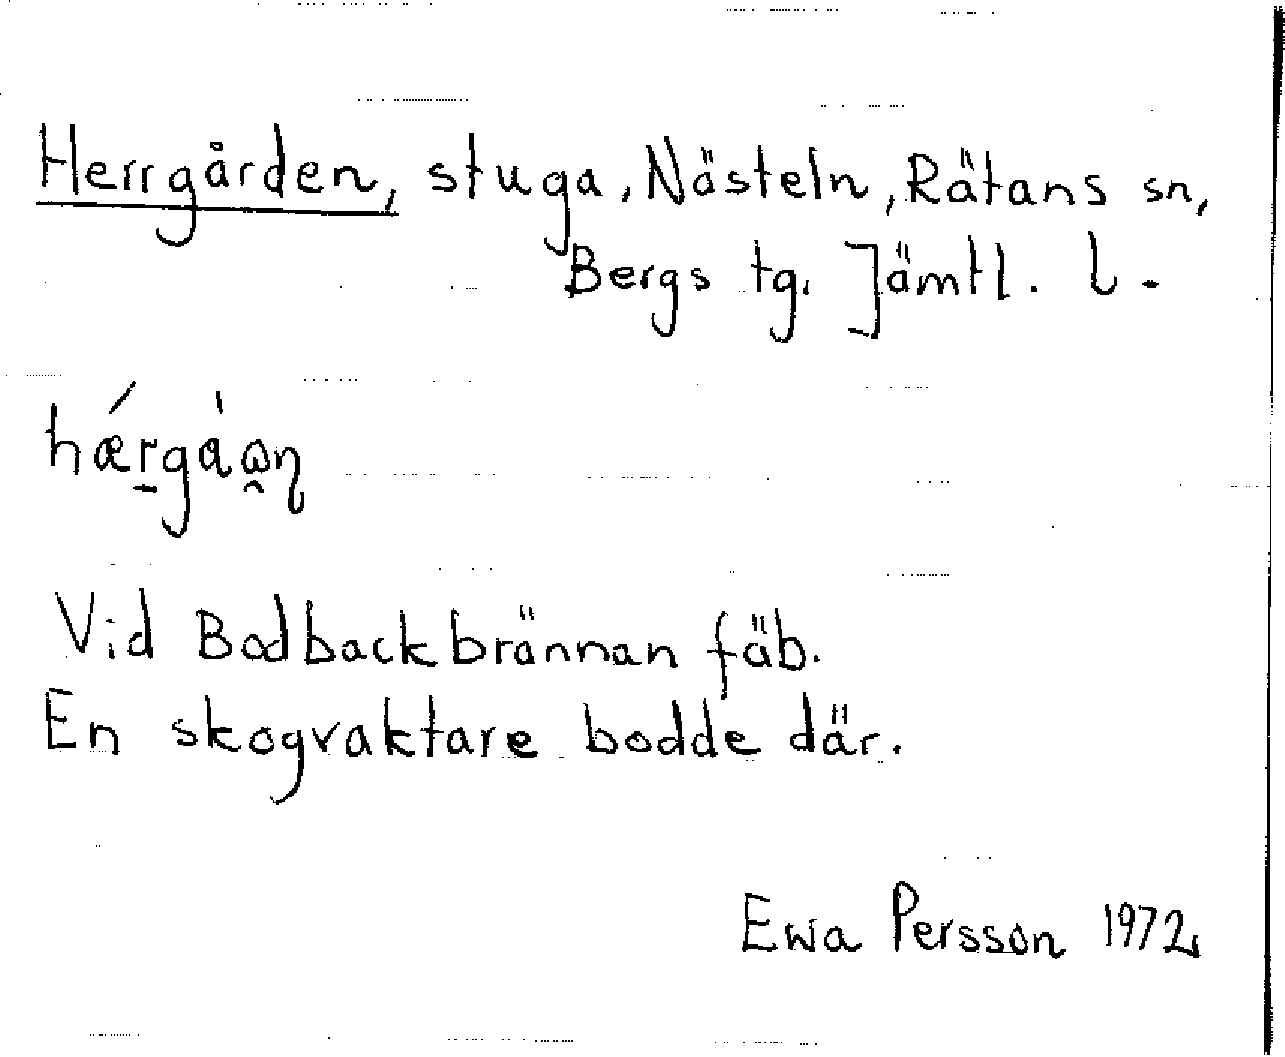 Herrgården, stuga, Nästeln, Rätans sn,
Bergs tg. Jämtl. l.
hǽr̠gàω̯ɳ
Vid Bodbackbrännan fäb.
En skogvaktare bodde där.
Ewa Persson 1972.